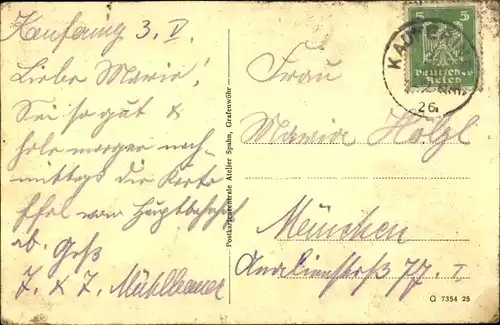 Kaufering 3. V.
Liebe Marie!
Sei so gut &
hole morgen nach-
mittags die Karto
ffel vom Hauptbahnhof
ab. Gruß
J. & J. Mühlbauer
Postkartenzentrale Atelier Spahn, Grafenwöhr
5 5
Deutsches
Reich
26.
Frau
Maria Holzl
München
Amalienstraß 77. I
Q 7354 25